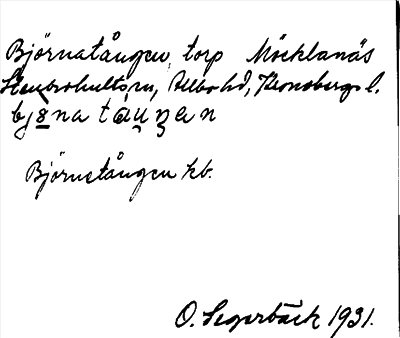 Björnatången, torp Möcklanäs
Stenbrohults sn, Allbo hd, Kronobergs l.
bjo̲natáu̯ŋən
Björnetången kb.
O. Segerbäck 1931.